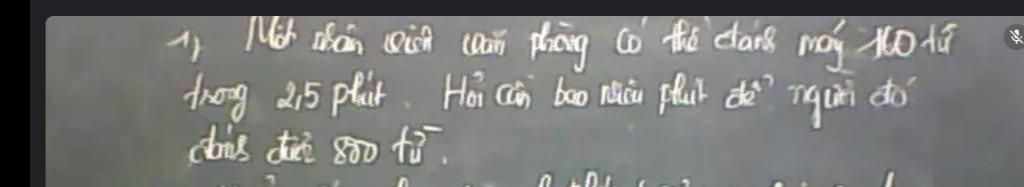 1) Một nhân viên văn phòng có thể đánh máy 160 từ
trong 2,5 phút. Hỏi cần bao nhiêu phút để người đó
đánh được 800 từ.